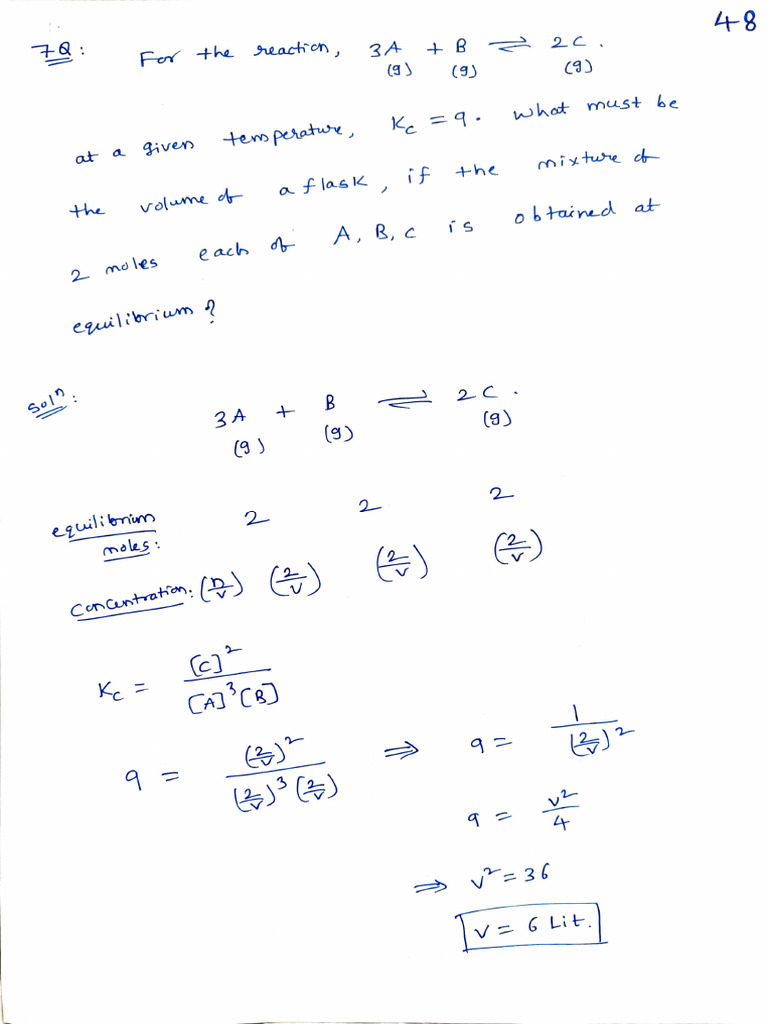 48
7Q: For the reaction, 3A + B ⇌ 2C.
(g) (g) (g)
at a given temperature, Kc = 9. What must be
the volume of a flask, if the mixture of
2 moles each of A, B, C is obtained at
equilibrium?
Solⁿ:
3A + B ⇌ 2C.
(g) (g) (g)
equilibrium 2 2 2
moles:
Concentration: (n/v) (2/v) (2/v) (2/v)
Kc = [C]² / [A]³ [B]
9 = (2/v)² / (2/v)³ (2/v) ⇒ 9 = 1 / (2/v)²
9 = v²/4
⇒ v² = 36
v = 6 Lit.